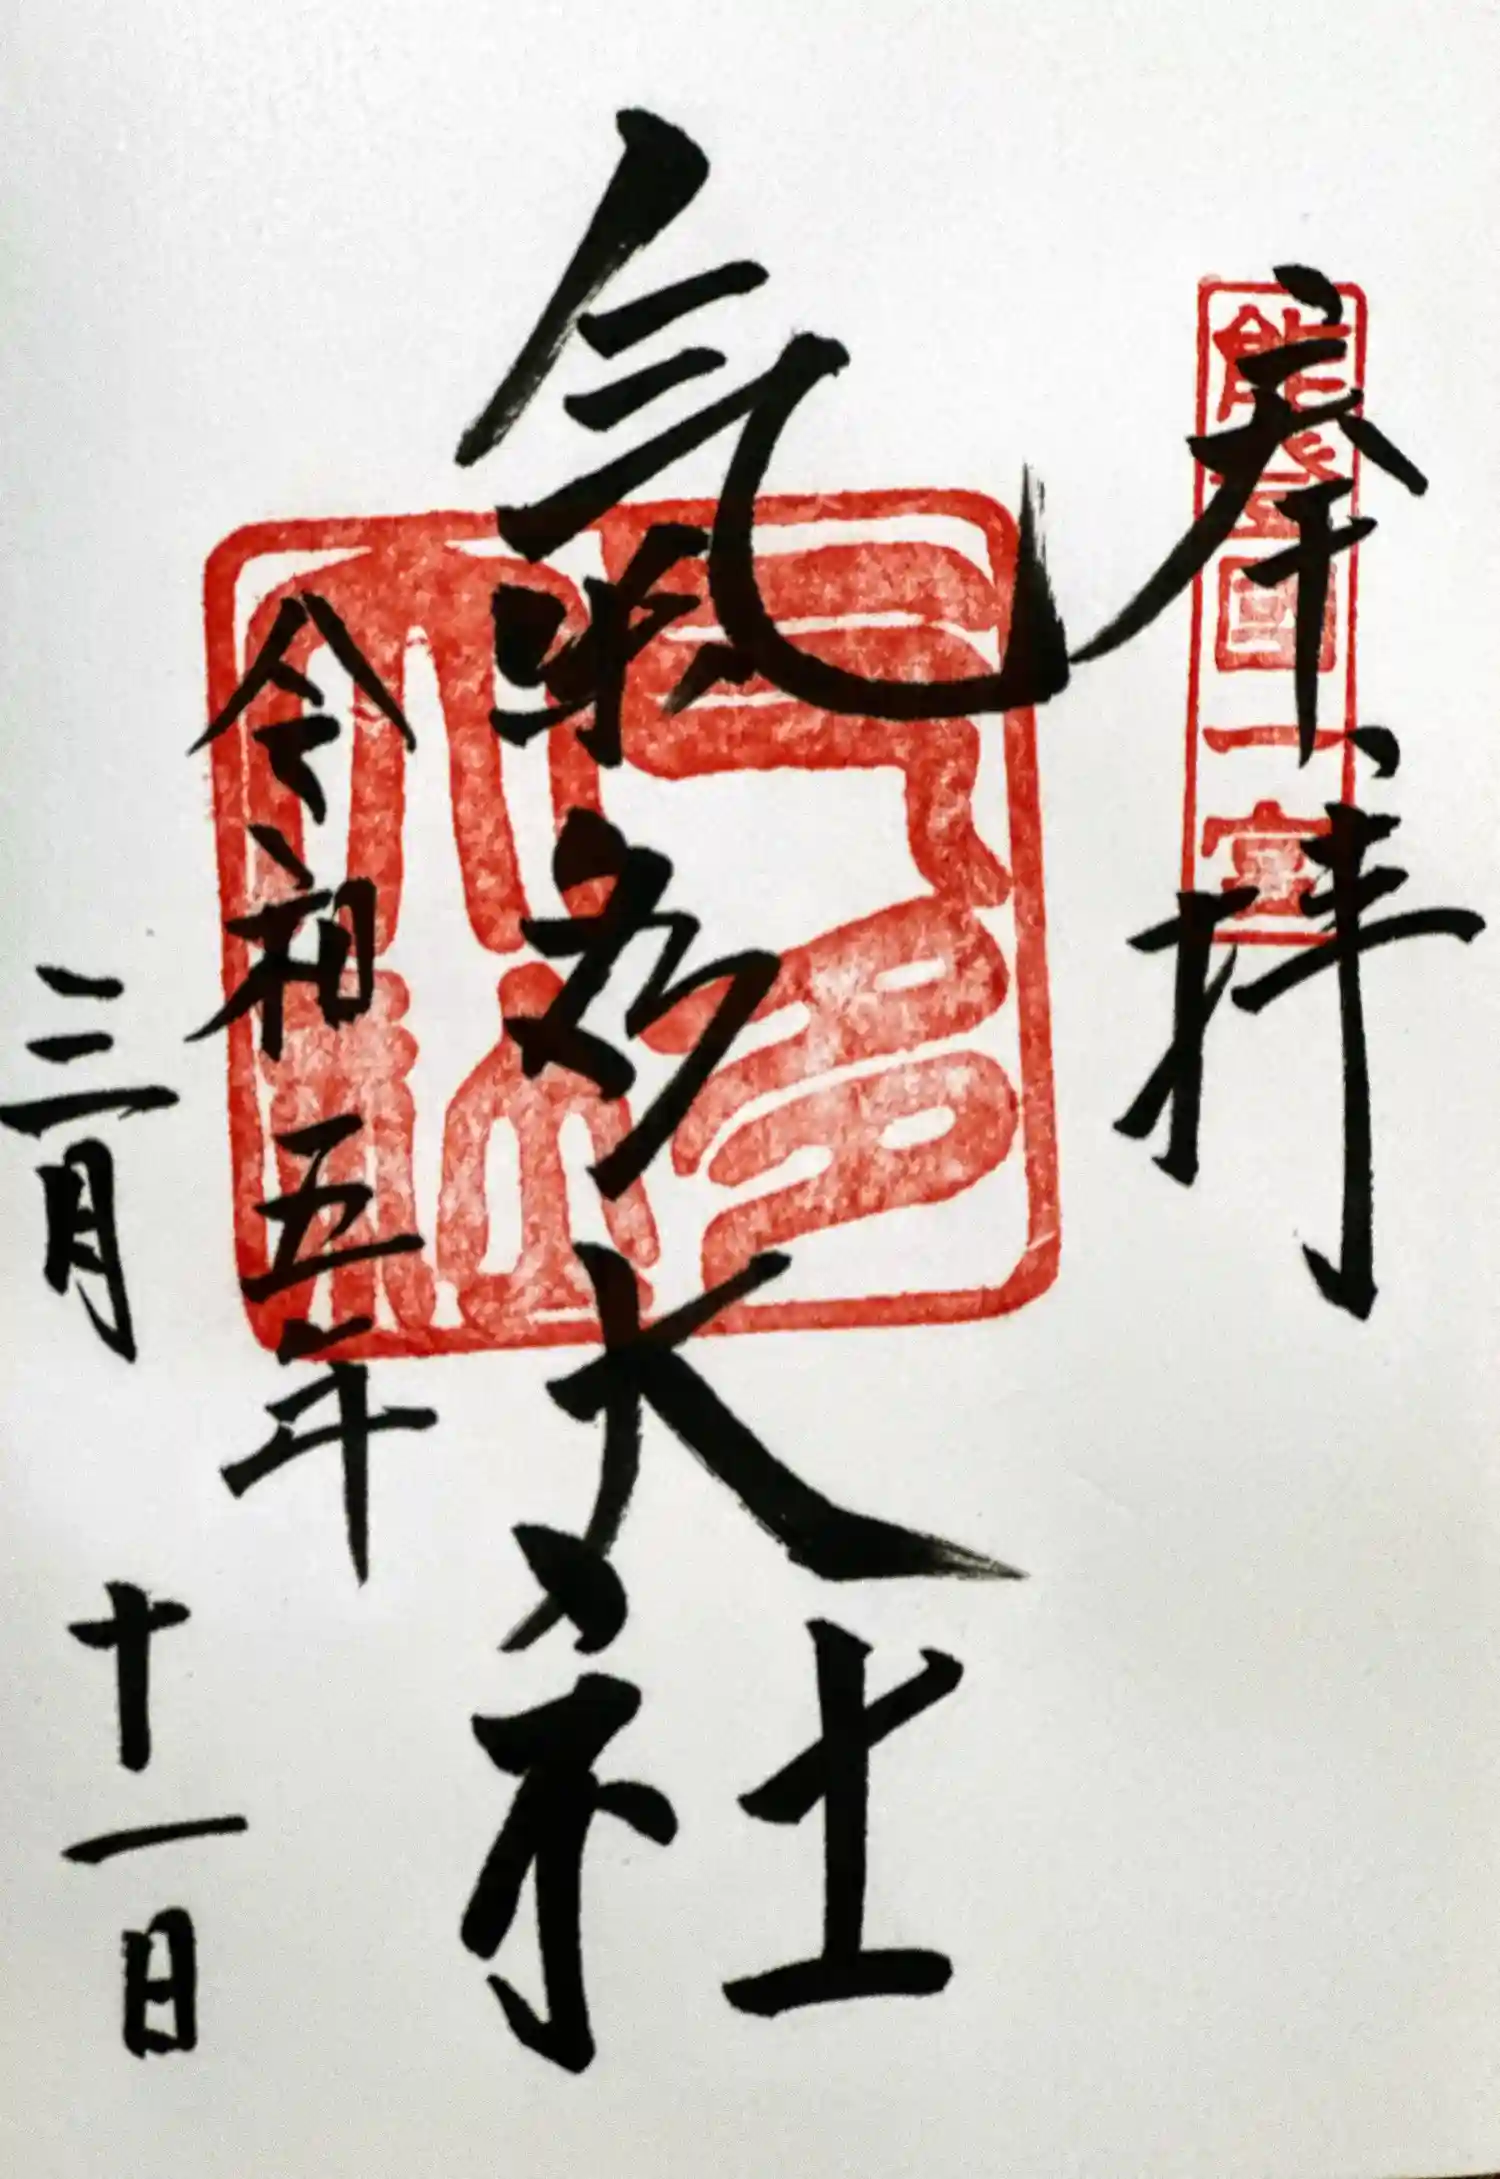 奉拝
能登国一宮
氣多大社
令和五年
三月十一日